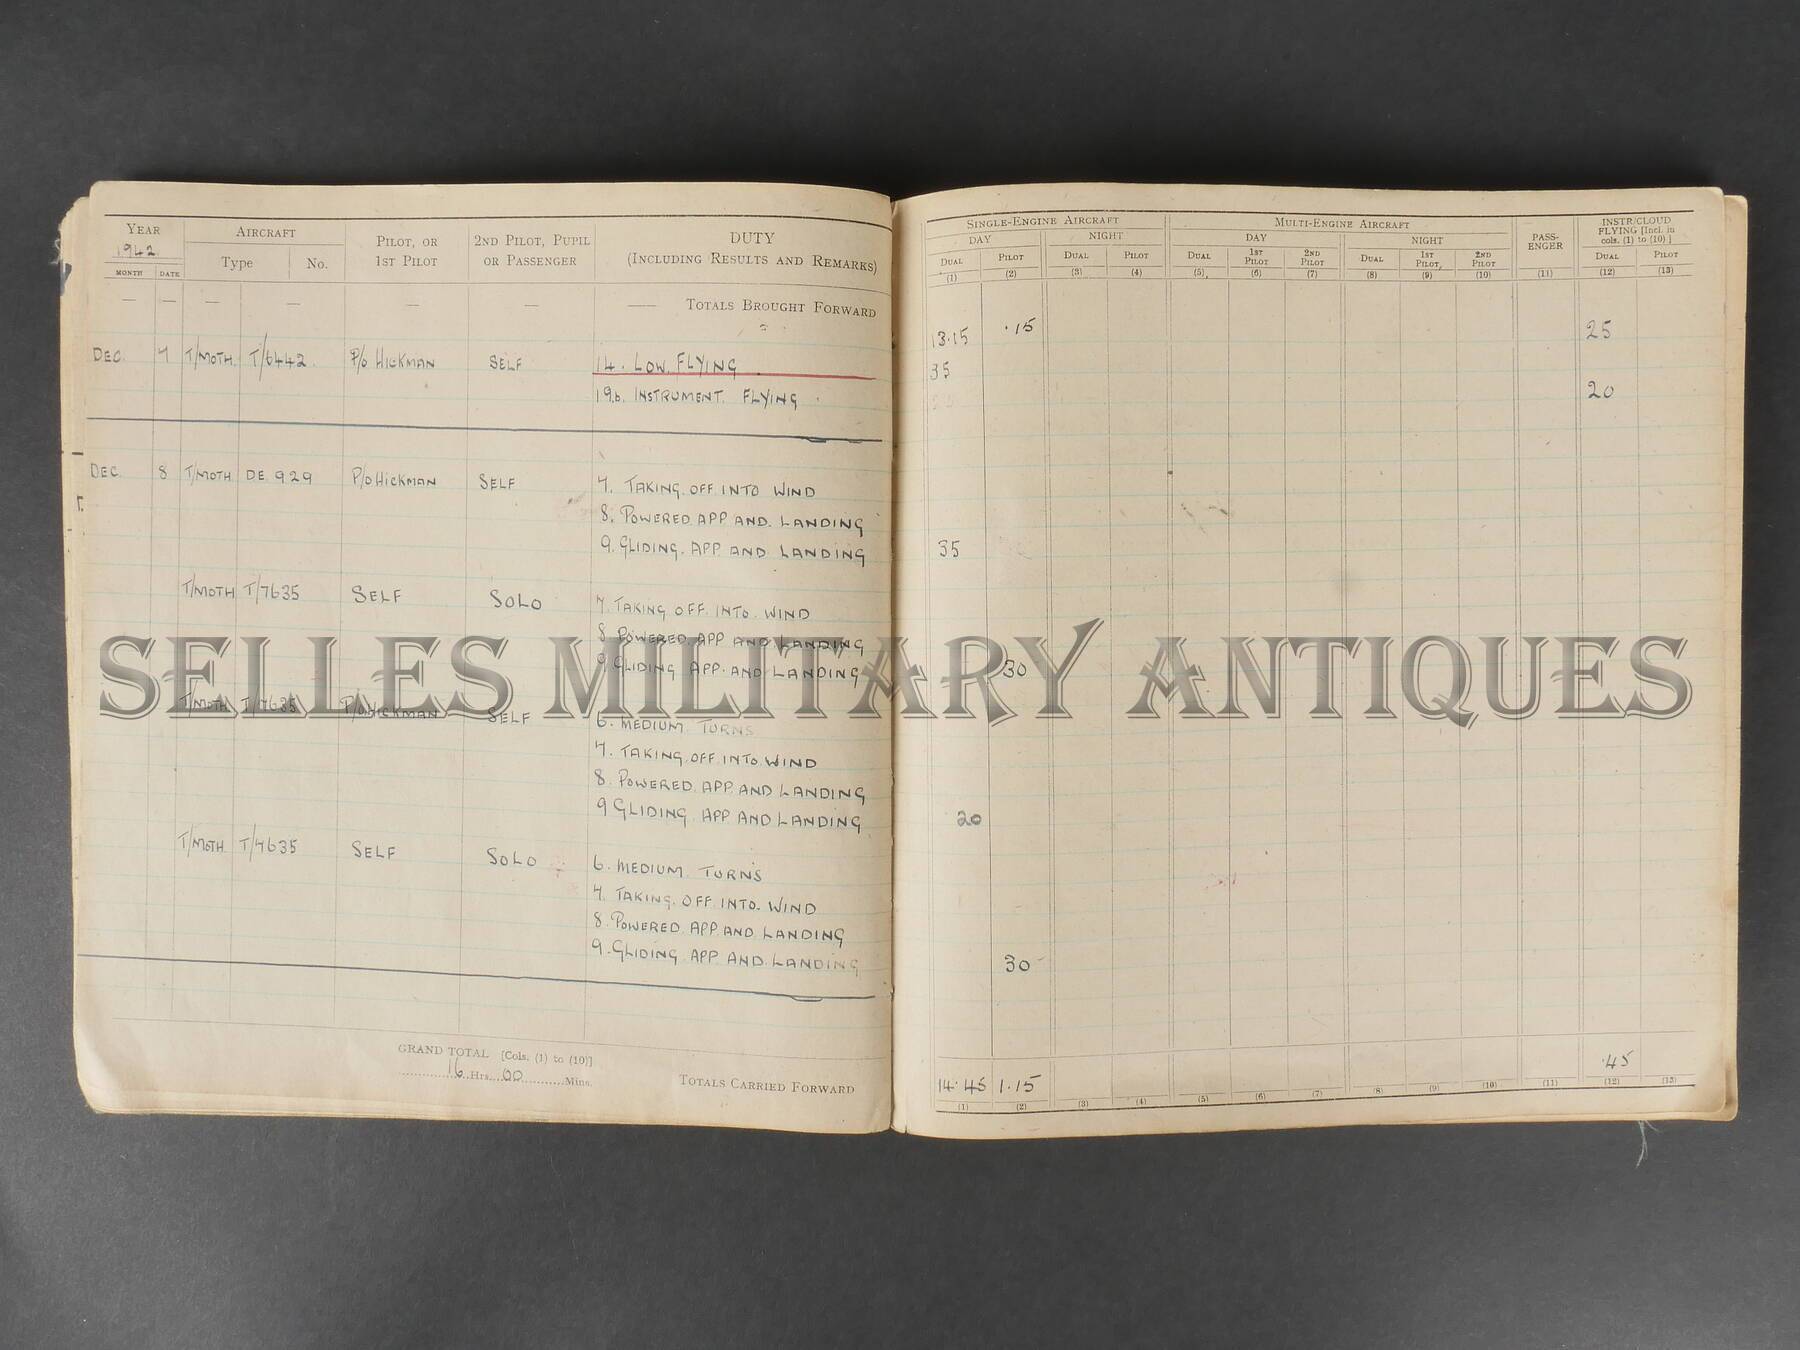 YEAR AIRCRAFT PILOT, OR 2ND PILOT, PUPIL DUTY SINGLE-ENGINE AIRCRAFT MULTI-ENGINE AIRCRAFT PASS- INSTR/CLOUD
1942. Type No. 1ST PILOT OR PASSENGER (INCLUDING RESULTS AND REMARKS) DAY NIGHT DAY NIGHT ENGER FLYING [Incl. in
cols. (1) to (10)]
MONTH DATE DUAL PILOT DUAL PILOT DUAL 1ST PILOT 2ND PILOT DUAL 1ST PILOT 2ND PILOT DUAL PILOT
(1) (2) (3) (4) (5) (6) (7) (8) (9) (10) (11) (12) (13)
— — — — — — —— TOTALS BROUGHT FORWARD 13.15 .15 25
DEC. 7 T/MOTH. T/6442. P/O HICKMAN SELF 14. LOW. FLYING. 35
19.b. INSTRUMENT. FLYING. 20
DEC. 8 T/MOTH DE 929 P/O HICKMAN SELF 7. TAKING. OFF. INTO WIND
8. POWERED. APP. AND. LANDING
9. GLIDING. APP. AND LANDING 35
T/MOTH T/7635 SELF SOLO 7. TAKING OFF. INTO. WIND
8 POWERED. APP AND LANDING
9. GLIDING APP. AND LANDING 30
T/MOTH T/7635 P/O. HICKMAN SELF 6. MEDIUM. TURNS
7. TAKING. OFF. INTO. WIND
8. POWERED. APP. AND LANDING
9 GLIDING. APP AND LANDING 20
T/MOTH. T/7635 SELF SOLO 6. MEDIUM. TURNS
7. TAKING. OFF. INTO. WIND
8. POWERED. APP. AND LANDING
9. GLIDING. APP. AND. LANDING 30
GRAND TOTAL [Cols. (1) to (10)]
16 Hrs. 00 Mins. TOTALS CARRIED FORWARD 14.45 1.15 .45
(1) (2) (3) (4) (5) (6) (7) (8) (9) (10) (11) (12) (13)
SELLES MILITARY ANTIQUES